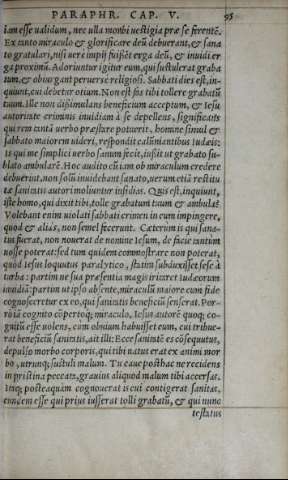 PARAPHR. CAP. V. 95
iam esse ualidum, nec ulla morbi uestigia præ se ferentẽ.
Ex tanto miraculo & glorificare deũ debuerant, & sana
to gratulari, nisi uere impij fuissẽt erga deũ, & inuidi er
ga proximũ. Adoriuntur igitur eum, qui sustulerat graba
tum, & obiurgant peruerse religiosi. Sabbati dies est, in-
quiunt, cui debetur otium. Non est fas tibi tollere grabatũ
tuum. Ille non dissimulans beneficium acceptum, & Iesu
autoritate criminis inuidiam à se depellens, significans
qui rem tantã uerbo præstare potuerit, homine simul &
sabbato maiorem uideri, respondit calumniantibus Iudæis:
Is qui me simplici uerbo sanum fecit, iussit ut grabato su-
blato ambularẽ. Hoc audito cũ iam ob miraculum credere
debuerint, non solũ inuidebant sanato, uerum etiã restitu
tæ sanitatis autori moliuntur insidias. Quis est, inquiunt,
iste homo, qui dixit tibi, tolle grabatum tuum & ambula?
Volebant enim uiolati sabbati crimen in eum impingere,
quod & aliàs, non semel fecerunt. Cæterum is qui sana-
tus fuerat, non nouerat de nomine Iesum, de facie tantum
nosse poterat: sed tum quidem commostrare non poterat,
quòd Iesus loquutus paralytico, statim subduxisset sese à
turba: partim ne sua præsentia magis irritaret Iudæorum
inuidiã: partim ut ipso absente, miraculũ maiore cum fide
cognosceretur ex eo, qui sanitatis beneficiũ senserat. Por-
rò iã cognito cõpertoq; miraculo, Iesus autorẽ quoq; co-
gnitũ esse uolens, cum obuium habuisset eum, cui tribue-
rat beneficiũ sanitatis, ait illi: Ecce sanitatẽ es cõsequutus,
depulso morbo corporis, qui tibi natus erat ex animi mor
bo, utrunq; sustuli malum. Tu caue posthac ne recidens
in pristina peccata, grauius aliquod malum tibi accersas.
Itaq; posteaquàm cognouerat is cui contigerat sanitas,
eundem esse qui prius iusserat tolli grabatũ, & qui nunc
testatus